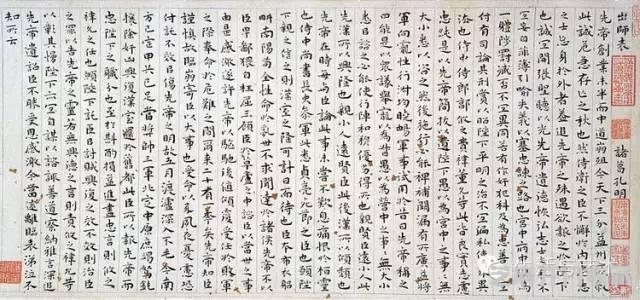 出師表 諸葛孔明
先帝創業未半而中道崩殂今天下三分益州疲敝
此誠危急存亡之秋也然侍衛之臣不懈於內忠志
之士忘身於外者蓋追先帝之殊遇欲報之於陛下
也誠宜開張聖聽以光先帝遺德恢弘志士之氣不
宜妄自菲薄引喻失義以塞忠諫之路也宮中府中俱為
一體陟罰臧否不宜異同若有作姦犯科及為忠善者宜
付有司論其刑賞以昭陛下平明之治不宜偏私使內外異
法也侍中侍郎郭攸之費禕董允等此皆良實志慮
忠純是以先帝簡拔以遺陛下愚以為宮中之事事無
大小悉以咨之然後施行必能裨補闕漏有所廣益將
軍向寵性行淑均曉暢軍事試用於昔日先帝稱之曰
能是以眾議舉寵為督愚以為營中之事事無大小
悉以諮之必能使行陣和穆優劣得所也親賢臣遠小人此
先漢所以興隆也親小人遠賢臣此後漢所以傾頹也
先帝在時每與臣論此事未嘗不歎息痛恨於桓靈
也侍中尚書長史參軍此悉貞亮死節之臣也願陛
下親之信之則漢室之隆可計日而待也臣本布衣躬
耕南陽苟全性命於亂世不求聞達於諸侯先帝不以
臣卑鄙猥自枉屈三顧臣於草廬之中諮臣以當世之事
由是感激遂許先帝以驅馳後值傾覆受任於敗軍
之際奉命於危難之間爾來二十有一年矣先帝知臣
謹慎故臨崩寄臣以大事也受命以來夙夜憂歎恐
付託不效以傷先帝之明故五月渡瀘深入不毛今南
方已定甲兵已足當獎帥三軍北定中原庶竭駑鈍
攘除姦凶興復漢室還於舊都此臣所以報先帝而
忠陛下之職分也至於斟酌損益進盡忠言則攸之
禕允之任也願陛下託臣以討賊興復之效不效則治臣
之罪以告先帝之靈若無興德之言則責攸之禕允等
之咎以彰其慢陛下亦宜自謀以諮諏善道察納雅言深追
先帝遺詔臣不勝受恩感激今當遠離臨表涕泣不
知所云